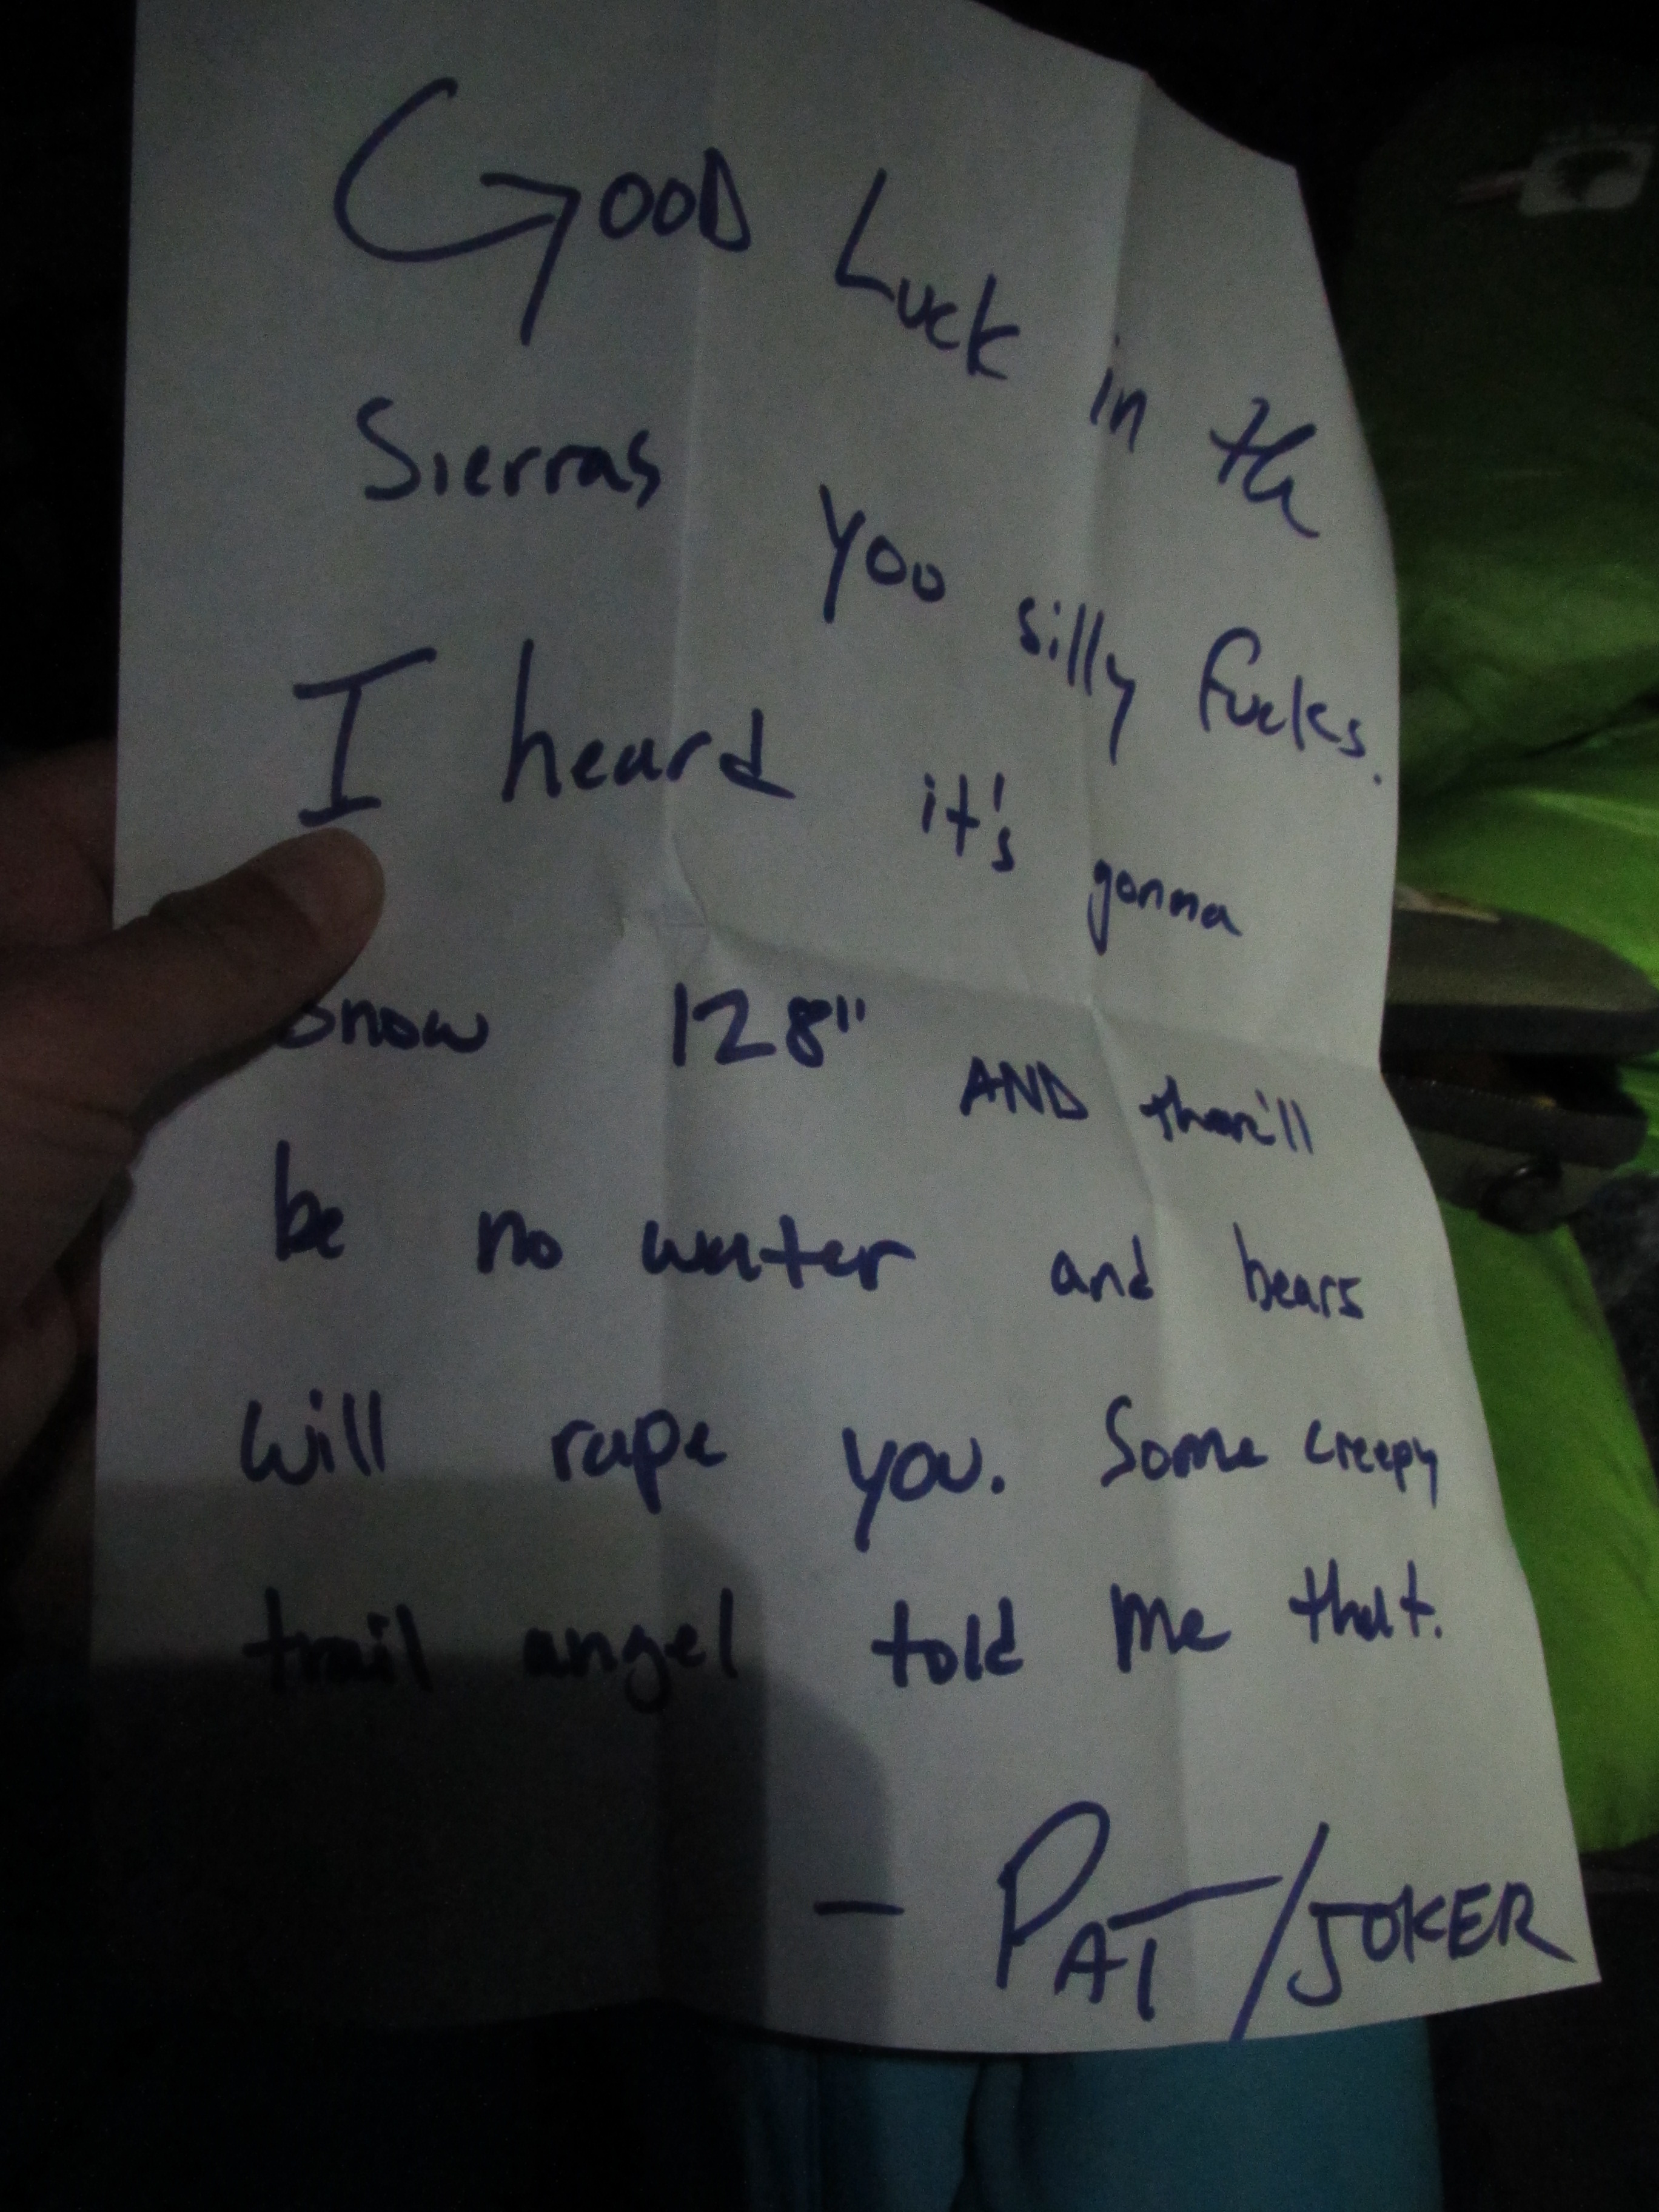 GOOD Luck in the
Sierras you silly fucks.
I heard it's gonna
snow 128" AND ther'll
be no water and bears
will rape you. Some creepy
trail angel told me that.
— PAT/JOKER